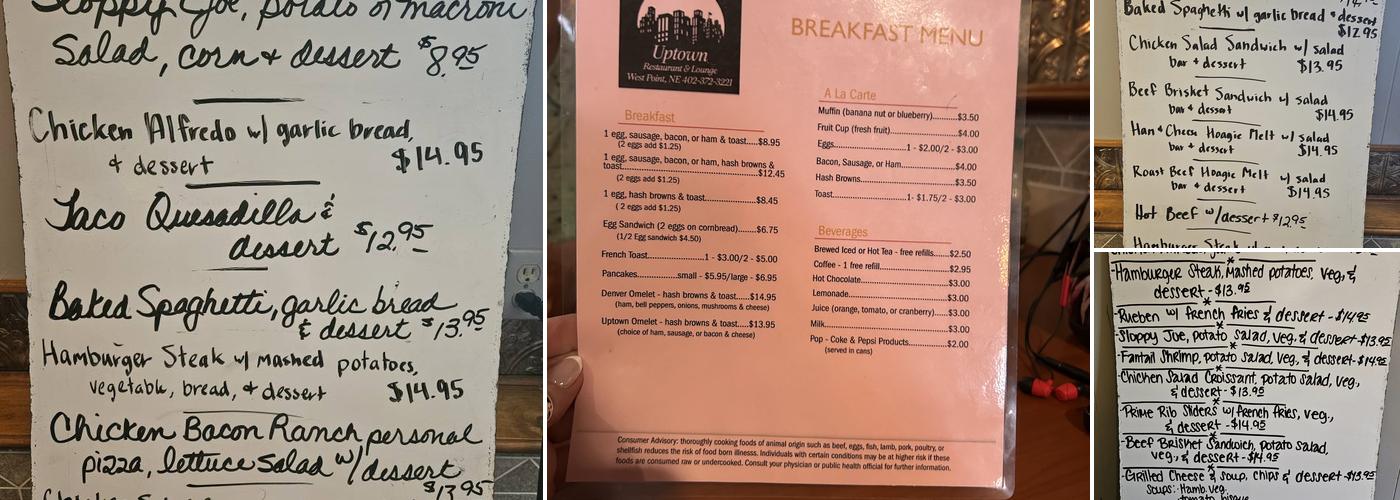 Sloppy Joe, potato or macroni
Salad, corn + dessert $8.95
Chicken Alfredo w/ garlic bread,
& dessert $14.95
Taco Quesadilla &
dessert $12.95
Baked Spaghetti, garlic bread
& dessert $13.95
Hamburger Steak w/ mashed potatoes,
vegetable, bread, + dessert $14.95
Chicken Bacon Ranch personal
pizza, lettuce Salad w/ dessert
$13.95
Uptown
Restaurant & Lounge
West Point, NE 402-372-3221
BREAKFAST MENU
Breakfast
1 egg, sausage, bacon, or ham & toast.....$8.95
(2 eggs add $1.25)
1 egg, sausage, bacon, or ham, hash browns &
toast..........$12.45
(2 eggs add $1.25)
1 egg, hash browns & toast..........$8.45
( 2 eggs add $1.25)
Egg Sandwich (2 eggs on cornbread)......$6.75
(1/2 Egg sandwich $4.50)
French Toast..........1 - $3.00/2 - $5.00
Pancakes..........small - $5.95/large - $6.95
Denver Omelet - hash browns & toast.....$14.95
(ham, bell peppers, onions, mushrooms & cheese)
Uptown Omelet - hash browns & toast.....$13.95
(choice of ham, sausage, or bacon & cheese)
A La Carte
Muffin (banana nut or blueberry)..........$3.50
Fruit Cup (fresh fruit)..........$4.00
Eggs..........1 - $2.00/2 - $3.00
Bacon, Sausage, or Ham..........$4.00
Hash Browns..........$3.50
Toast..........1- $1.75/2 - $3.00
Beverages
Brewed Iced or Hot Tea - free refills..........$2.50
Coffee - 1 free refill..........$2.95
Hot Chocolate..........$3.00
Lemonade..........$3.00
Juice (orange, tomato, or cranberry)......$3.00
Milk..........$3.00
Pop - Coke & Pepsi Products..........$2.00
(served in cans)
Consumer Advisory: thoroughly cooking foods of animal origin such as beef, eggs, fish, lamb, pork, poultry, or
shellfish reduces the risk of food born illness. Individuals with certain conditions may be at higher risk if these
foods are consumed raw or undercooked. Consult your physician or public health official for further information.
Baked Spaghetti w/ garlic bread + dessert
$12.95
Chicken Salad Sandwich w/ salad
bar + dessert $13.95
Beef Brisket Sandwich w/ salad
bar + dessert $14.95
Ham + Cheese Hoagie Melt w/ salad
bar + dessert $14.95
Roast Beef Hoagie Melt w/ salad
bar + dessert $14.95
Hot Beef w/dessert $12.95
Hamburger Steak w/
-Hamburger Steak, Mashed potatoes, veg, &
dessert - $13.95
-Rueben w/ french fries & dessert - $14.95
-Sloppy Joe, potato salad, veg. & dessert-$13.95
-Fantail Shrimp, potato salad, veg., & dessert-$14.95
-Chicken Salad Croissant, potato salad, veg.,
& dessert - $13.95
-Prime Rib Sliders w/ french fries, veg.,
& dessert - $14.95
-Beef Brisket Sandwich, potato salad,
veg., & dessert - $14.95
-Grilled Cheese & soup, chips & dessert -$13.95
Soups: -Hamb. veg.
-tomato bisque